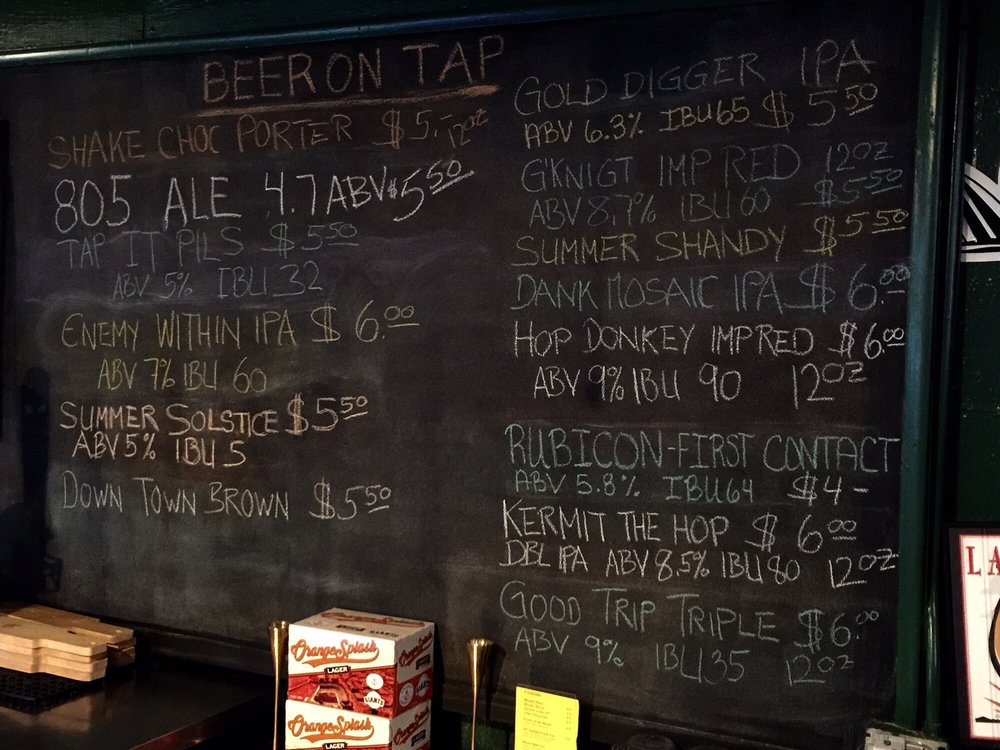 BEER ON TAP
SHAKE CHOC PORTER $5.- 12oz
805 ALE 4.7 ABV $5.50
TAP IT PILS $5.50
ABV 5% IBU 32
ENEMY WITHIN IPA $6.00
ABV 7% IBU 60
SUMMER SOLSTICE $5.50
ABV 5% IBU 5
DOWN TOWN BROWN $5.50
GOLD DIGGER IPA
ABV 6.3% IBU 65 $5.50
G'KNIGT IMP RED 12oz
ABV 8.7% IBU 60 $5.50
SUMMER SHANDY $5.50
DANK MOSAIC IPA $6.00
HOP DONKEY IMP RED $6.00
ABV 9% IBU 90 12oz
RUBICON-FIRST CONTACT
ABV 5.8% IBU 64 $4-
KERMIT THE HOP $6.00
DBL IPA ABV 8.5% IBU 80 12oz
GOOD TRIP TRIPLE $6.00
ABV 9% IBU 35 12oz
Orange Splash
LAGER
GIANTS
Orange Splash
LAGER
LA